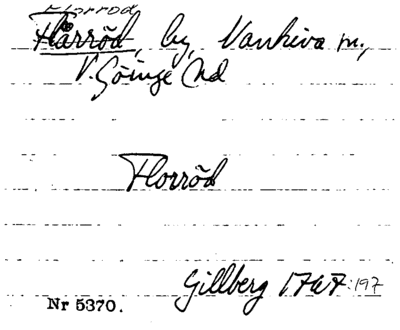 Florröd
Flårröd, by, Vankiva sn,
V. Göinge hd
Florröd
Gillberg 1767:197
Nr 5370.